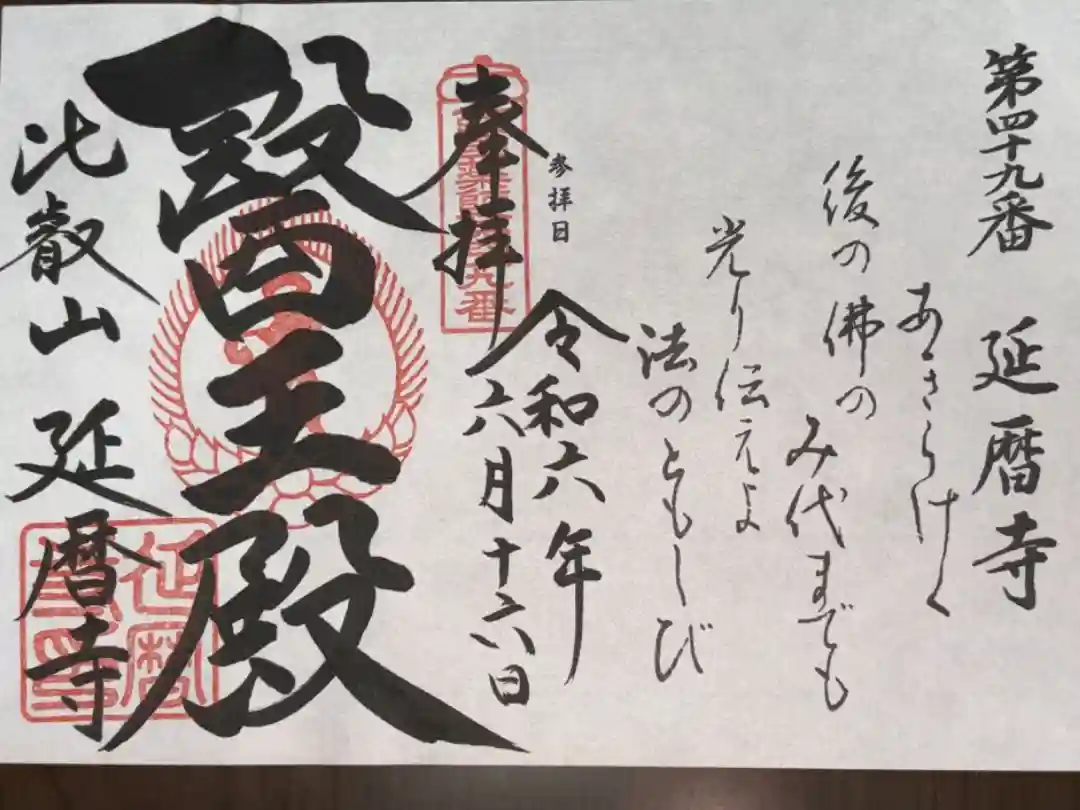 第四十九番 延暦寺
あきらけく
後の佛の
み代までも
光り伝えよ
法のともしび
参拝日
令和六年
六月十六日
奉拝
醫王殿
比叡山 延暦寺
延暦